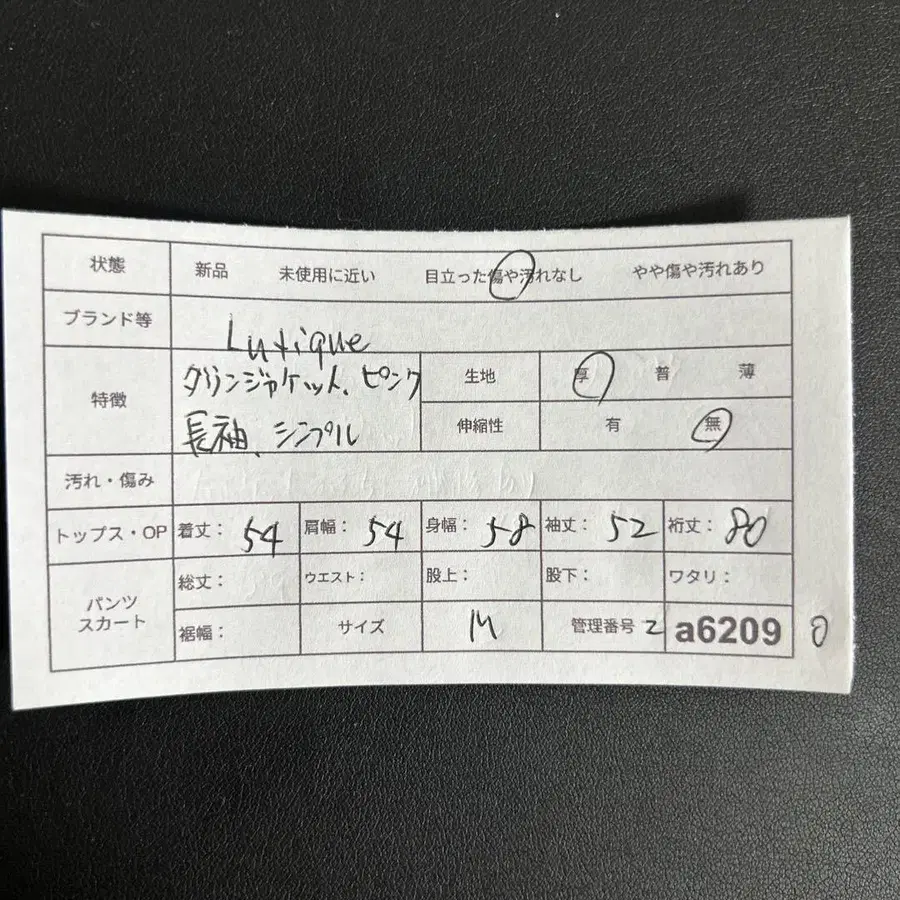 状態 新品 未使用に近い 目立った傷や汚れなし やや傷や汚れあり
ブランド等 Lutique
特徴 ダウンジャケット、ピンク 生地 厚 普 薄
長袖、シンプル 伸縮性 有 無
汚れ・傷み
トップス・OP 着丈： 54 肩幅： 54 身幅： 58 袖丈： 52 裄丈： 80
パンツ スカート 総丈： ウエスト： 股上： 股下： ワタリ：
裾幅： サイズ M 管理番号 2 a6209 0